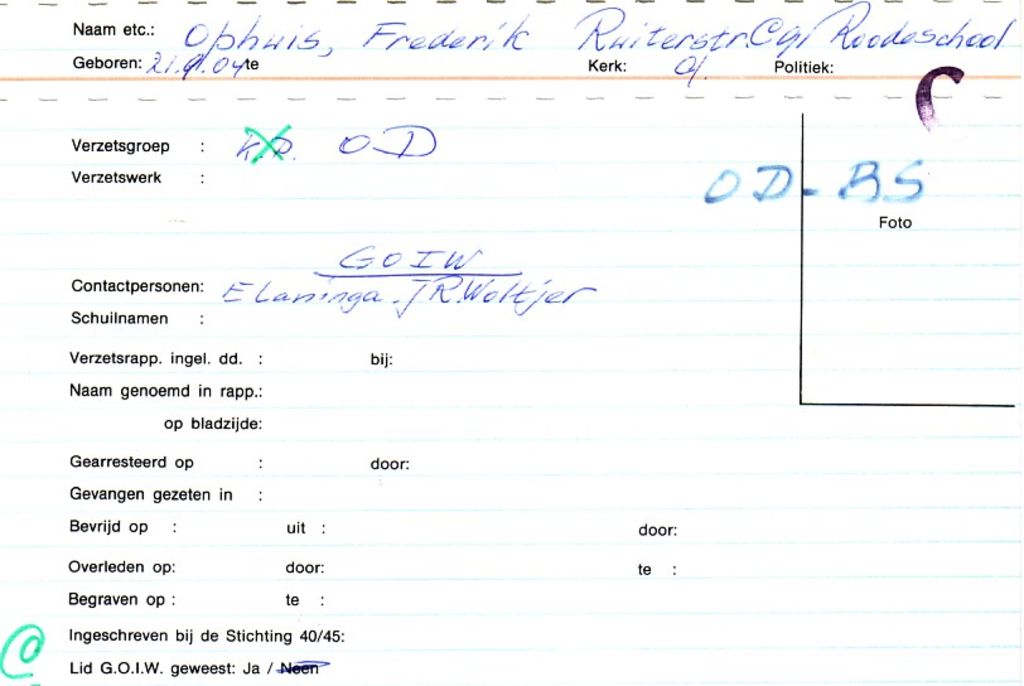 Naam etc.: Ophuis, Frederik Ruiterstr. C91 Roodeschool
Geboren: 21.9.04 te Kerk: Politiek:
Verzetsgroep : K.P. OD
Verzetswerk :
OD-BS
Foto
GOIW
Contactpersonen: E Laninga. JR.Woltjer
Schuilnamen :
Verzetsrapp. ingel. dd. : bij:
Naam genoemd in rapp.:
op bladzijde:
Gearresteerd op : door:
Gevangen gezeten in :
Bevrijd op : uit : door:
Overleden op: door: te :
Begraven op : te :
Ingeschreven bij de Stichting 40/45:
Lid G.O.I.W. geweest: Ja / Neen